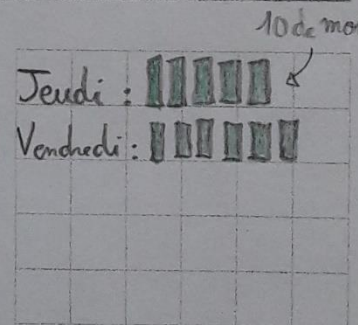 10 de mo
Jeudi :
Vendredi :